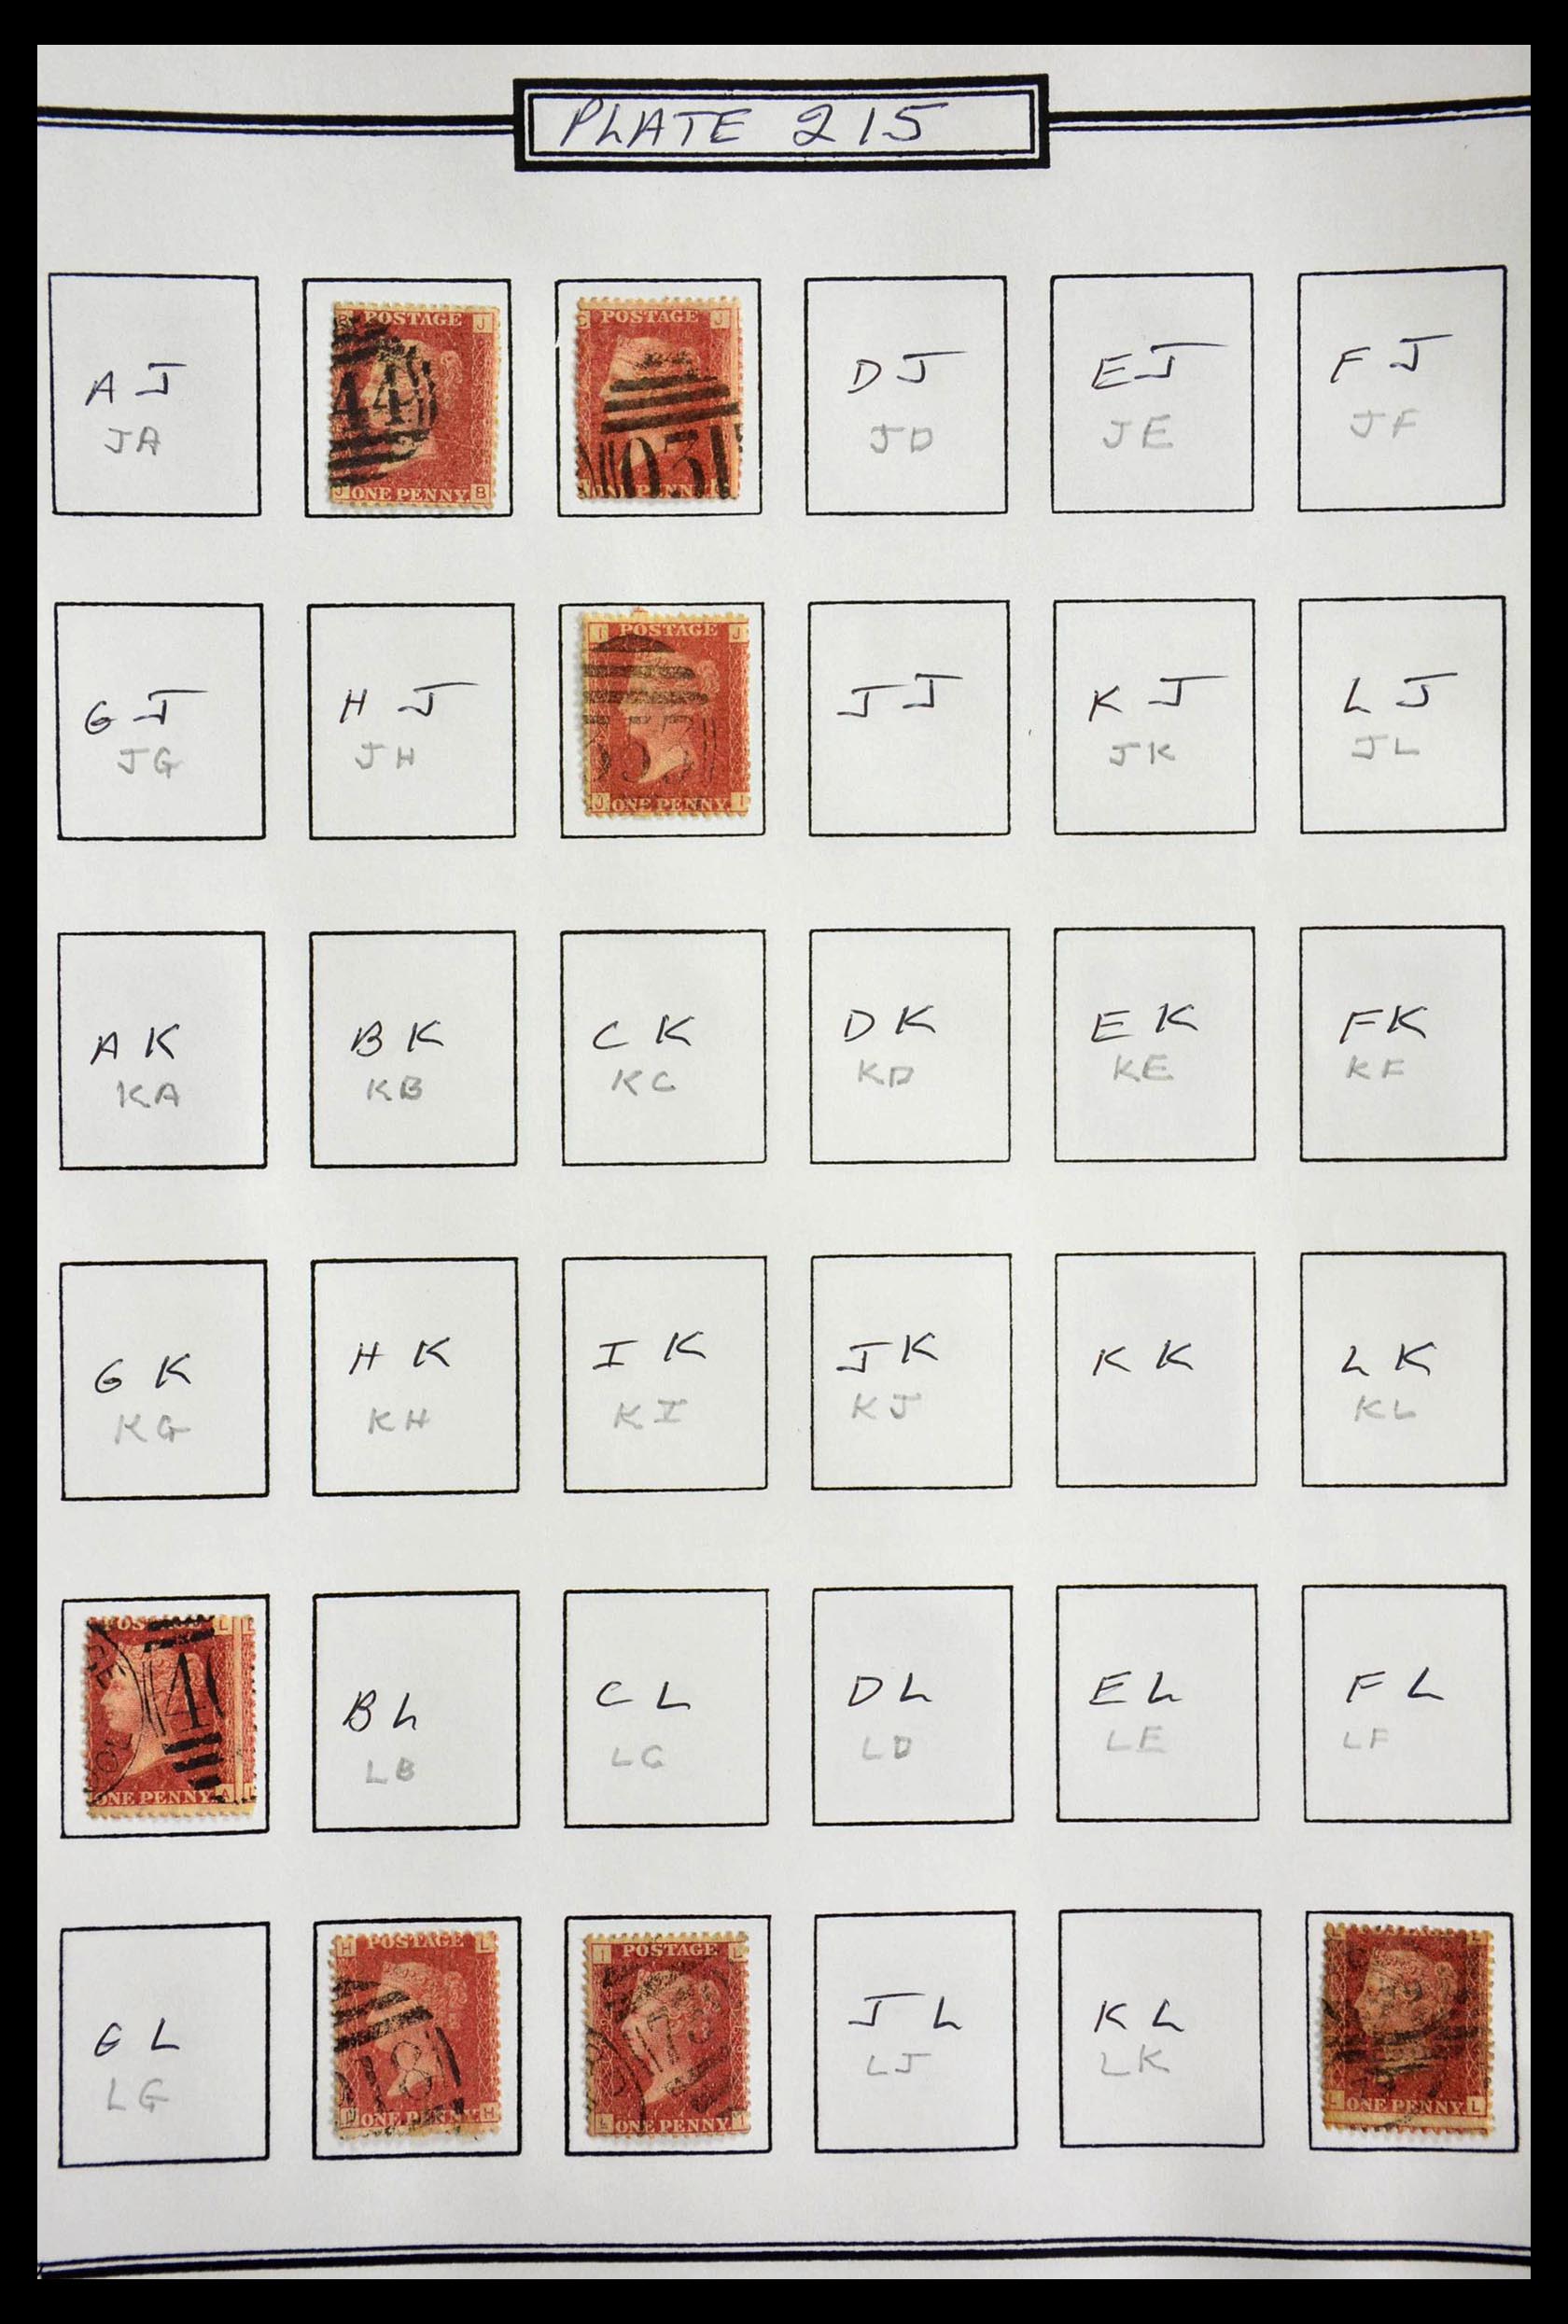 PLATE 215
A J
JA
B POSTAGE J
44
J ONE PENNY. B
POSTAGE J
03
D J
JD
E J
JE
F J
JF
G J
JG
H J
JH
I POSTAGE J
J ONE PENNY. I
J J
K J
JK
L J
JL
A K
KA
B K
KB
C K
KC
D K
KD
E K
KE
F K
KF
G K
KG
H K
KH
I K
KI
J K
KJ
K K
L K
KL
L
4
ONE PENNY. A
B L
LB
C L
LC
D L
LD
E L
LE
F L
LF
G L
LG
H POSTAGE L
18
ONE PENNY H
I POSTAGE L
73
L ONE PENNY. I
J L
LJ
K L
LK
L L
L ONE PENNY. L